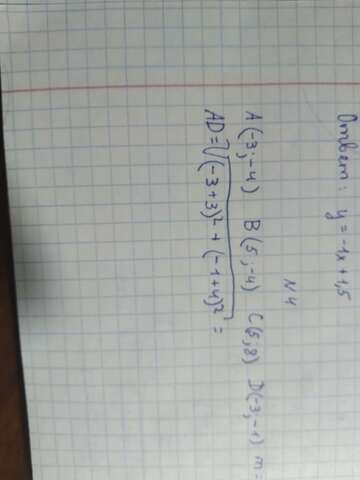 Ответ: y = -1x + 1,5
N4
A(-3;-4) B(5;-4) C(5;8) D(-3;-1) m=
AD=√(-3+3)²+(-1+4)² =